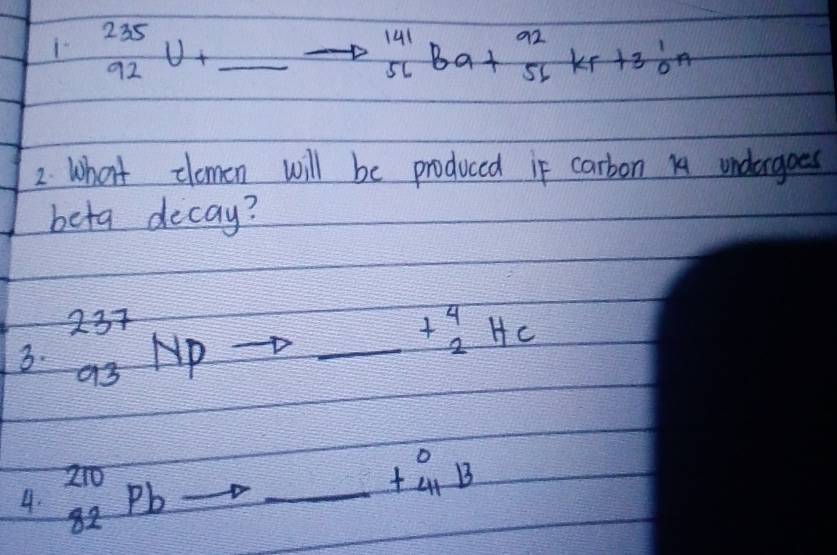 1. ²³⁵₉₂ U + ___ → ¹⁴¹₅₆ Ba + ⁹²₅₆ Kr + 3 ¹₀n
2. What elemen will be produced if carbon 14 undergoes
beta decay?
3. ²³⁷₉₃ Np → ___ + ⁴₂ He
4. ²¹⁰₈₂ Pb → ___ + ⁰ B